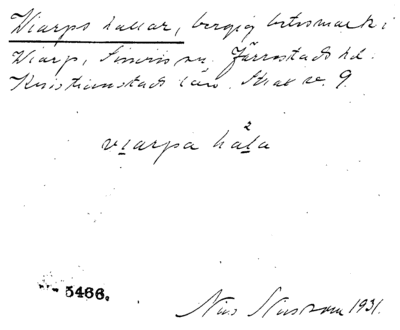 Wiarps hallar, bergig betesmark i
Wiarp, Simris sn. Järrestads hd.
Kristianstads län. Skax v. 9.
vıarpa hala
5466.
Nils Nilsson 1931.